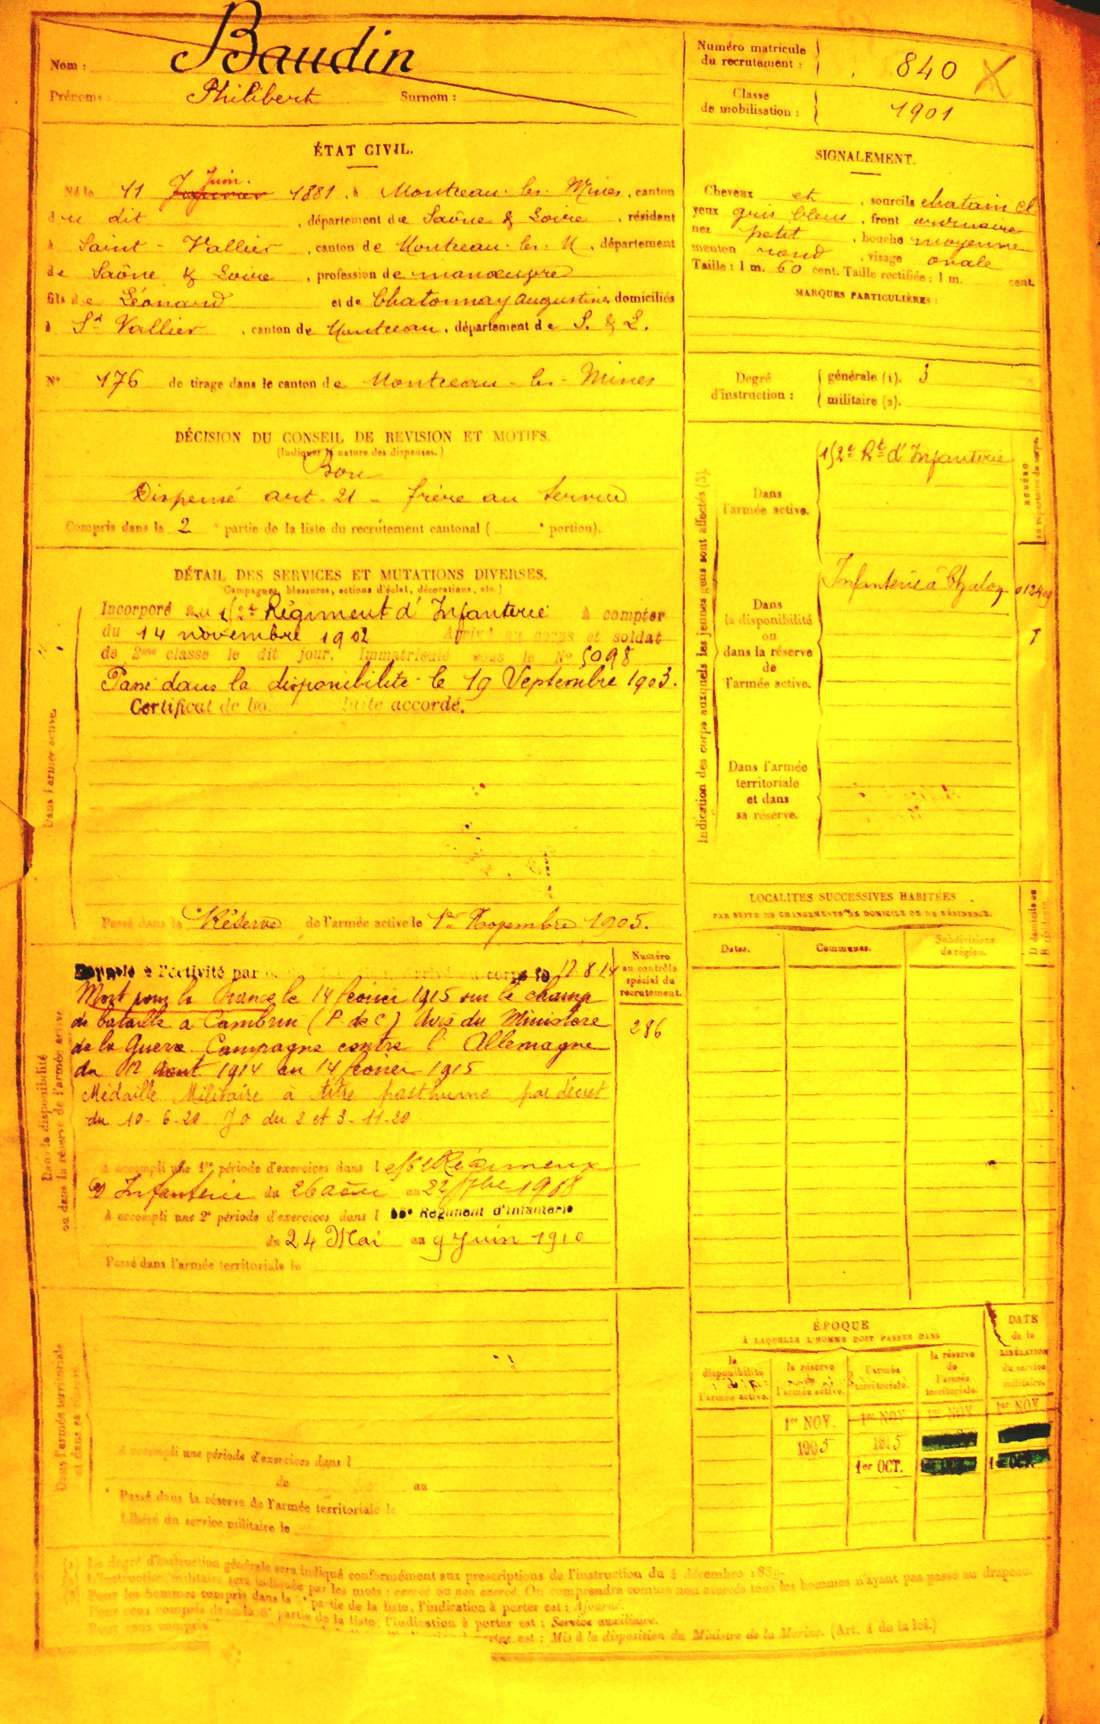 Nom : Baudin
Prénoms : Philibert Surnom :
Numéro matricule du recrutement : 840
Classe de mobilisation : 1901
ÉTAT CIVIL.
Né le 11 Janvier Juin 1881, à Montceau-les-Mines, canton
du dit, département de Saône & Loire, résidant
à Saint-Vallier, canton de Montceau-les-M, département
de Saône & Loire, profession de manœuvre
fils de Léonard et de Chatonnay Augustine, domiciliés
à St Vallier, canton de Montceau, département de S. & L.
N° 176 de tirage dans le canton de Montceau-les-Mines
SIGNALEMENT.
Cheveux et, sourcils chatain cl
yeux gris bleus, front ordinaire
nez petit, bouche moyenne
menton rond, visage ovale
Taille : 1 m. 60 cent. Taille rectifiée : 1 m. cent.
MARQUES PARTICULIÈRES :
Degré d'instruction : générale (1). 3
militaire (2).
DÉCISION DU CONSEIL DE REVISION ET MOTIFS.
(Indiquer la nature des dispenses.)
Bon
Dispensé art. 21 - frère au service
Compris dans la 2e partie de la liste du recrutement cantonal ( e portion).
DÉTAIL DES SERVICES ET MUTATIONS DIVERSES.
(Campagnes, blessures, actions d'éclat, décorations, etc.)
Dans l'armée active.
Incorporé au Régiment d'Infanterie à compter
du 14 novembre 1902 Arrivé au corps et soldat
de 2me classe le dit jour. Immatriculé sous le N° 5098
Passé dans la disponibilité le 19 Septembre 1903.
Certificat de bonne conduite accordé.
Passé dans la Réserve de l'armée active le 1er Novembre 1905.
Indication des corps auxquels les jeunes gens sont affectés (3).
Dans l'armée active.
Rt d'Infanterie
Dans la disponibilité ou dans la réserve de l'armée active.
Infanterie à
Dans l'armée territoriale et dans sa réserve.
LOCALITÉS SUCCESSIVES HABITÉES
PAR SUITE DE CHANGEMENTS DE DOMICILE OU DE RÉSIDENCE.
Dates. Communes. Subdivisions de région.
Dans la disponibilité ou dans la réserve de l'armée active
Numéro au contrôle spécial du recrutement.
286
Rappelé à l'activité par arrivé au corps le 12.8.14
Mort pour la France le 14 février 1915 sur le champ
de bataille à Cambrin (P de C) Avis du Ministère
de la Guerre. Campagne contre l'Allemagne
du 12 Aout 1914 au 14 février 1915
Médaille Militaire à titre posthume par décret
du 10-6-20 JO du 2 et 3-11-20
A accompli une 1re période d'exercices dans l
d'Infanterie du 26 août au 22 7bre 1908
A accompli une 2e période d'exercices dans l Régiment d'Infanterie
du 24 Mai au 9 Juin 1910
Passé dans l'armée territoriale le
Dans l'armée territoriale et dans sa réserve.
A accompli une période d'exercices dans l
de au
Passé dans la réserve de l'armée territoriale le
Libéré du service militaire le
ÉPOQUE
À LAQUELLE L'HOMME DOIT PASSER DANS
la disponibilité de l'armée active.
la réserve de l'armée active.
l'armée territoriale.
la réserve de l'armée territoriale.
DATE de la LIBÉRATION du service militaire.
1er NOV. 1er NOV 1er NOV 1er NOV
1905 1915
1er OCT.
(1) Le degré d'instruction générale sera indiqué conformément aux prescriptions de l'instruction du